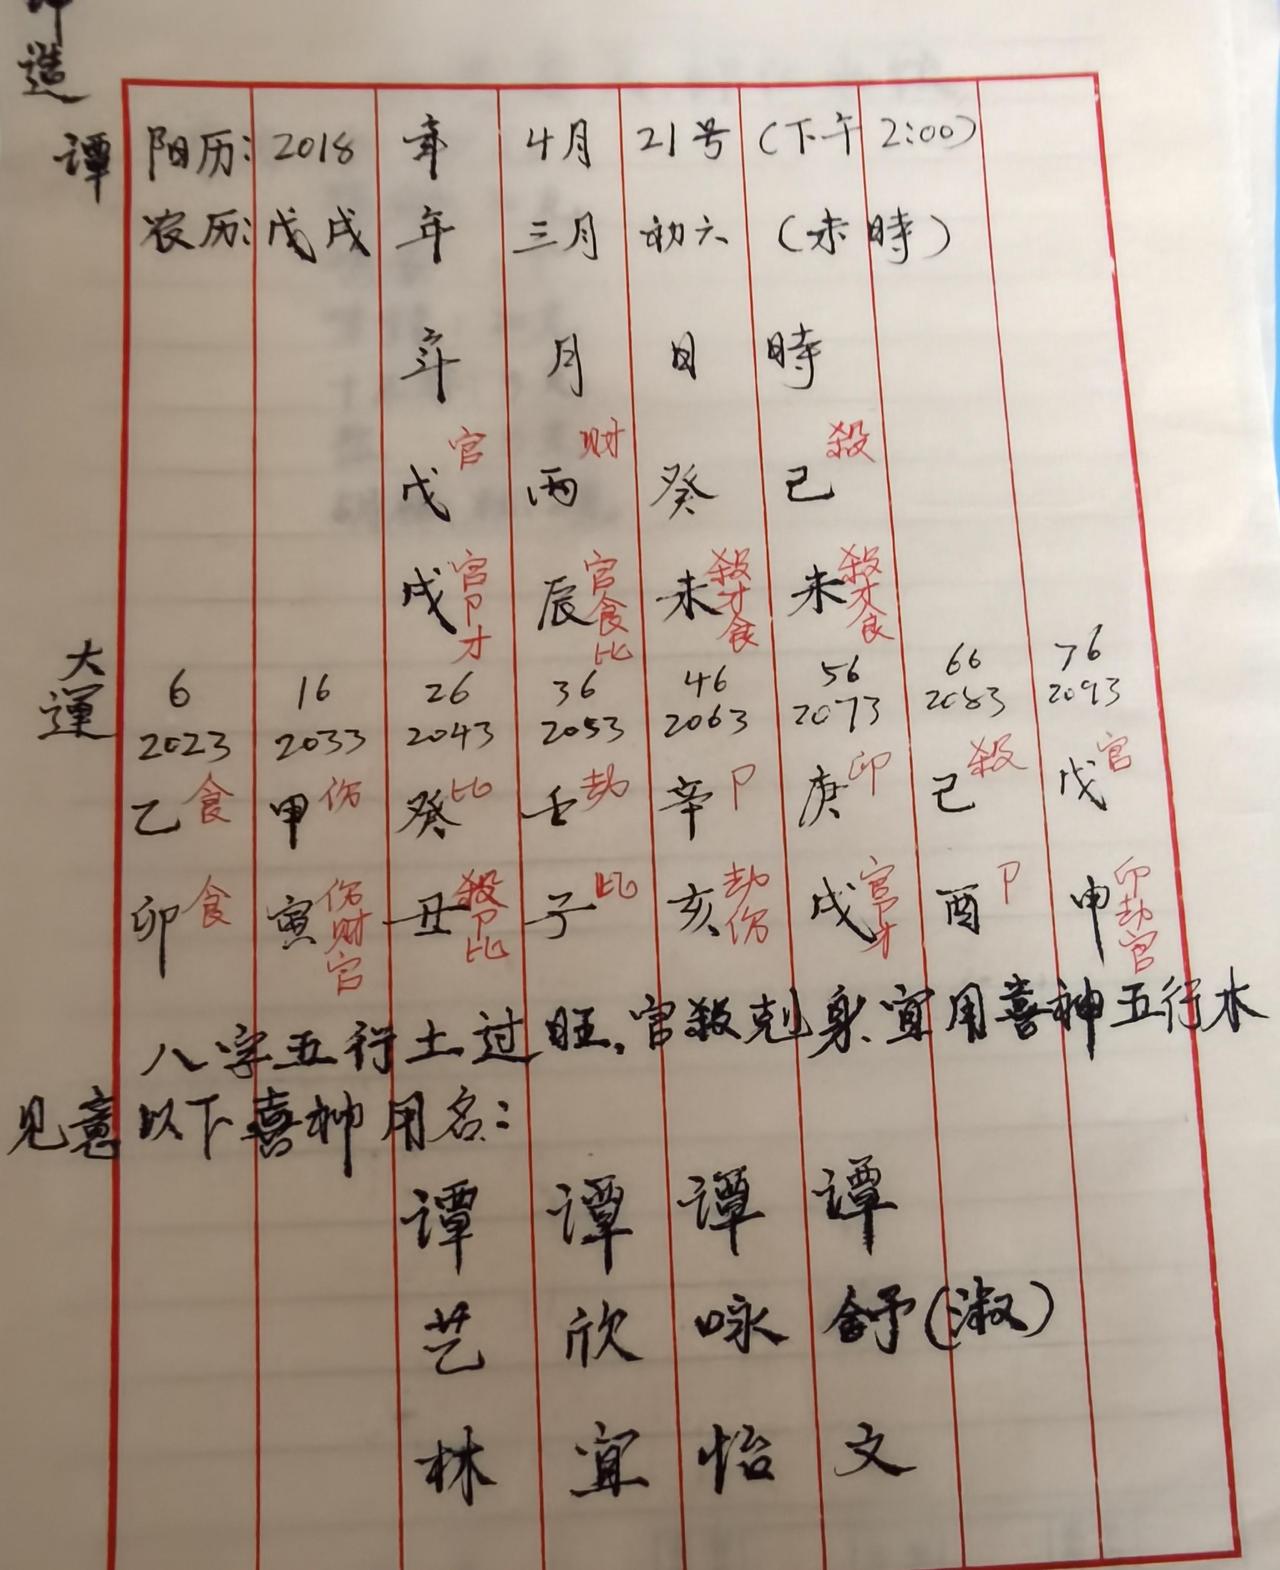 造
谭 阳历: 2018 年 4月 21号 (下午 2:00)
农历: 戊戌 年 三月 初六 (未時)
年 月 日 時
官 财 殺
戊 丙 癸 己
戌 官卩才 辰 官食比 未 殺才食 未 殺才食
大運
6 16 26 36 46 56 66 76
2023 2033 2043 2053 2063 2073 2083 2093
乙食 甲伤 癸比 壬劫 辛卩 庚印 己殺 戊官
卯食 寅伤财官 丑殺卩比 子比 亥劫伤 戌官卩才 酉卩 申印劫官
八字五行土过旺,官殺剋身.宜用喜神五行木
见意以下喜神用名:
谭 谭 谭 谭
艺 欣 咏 舒(淑)
林 宜 怡 文